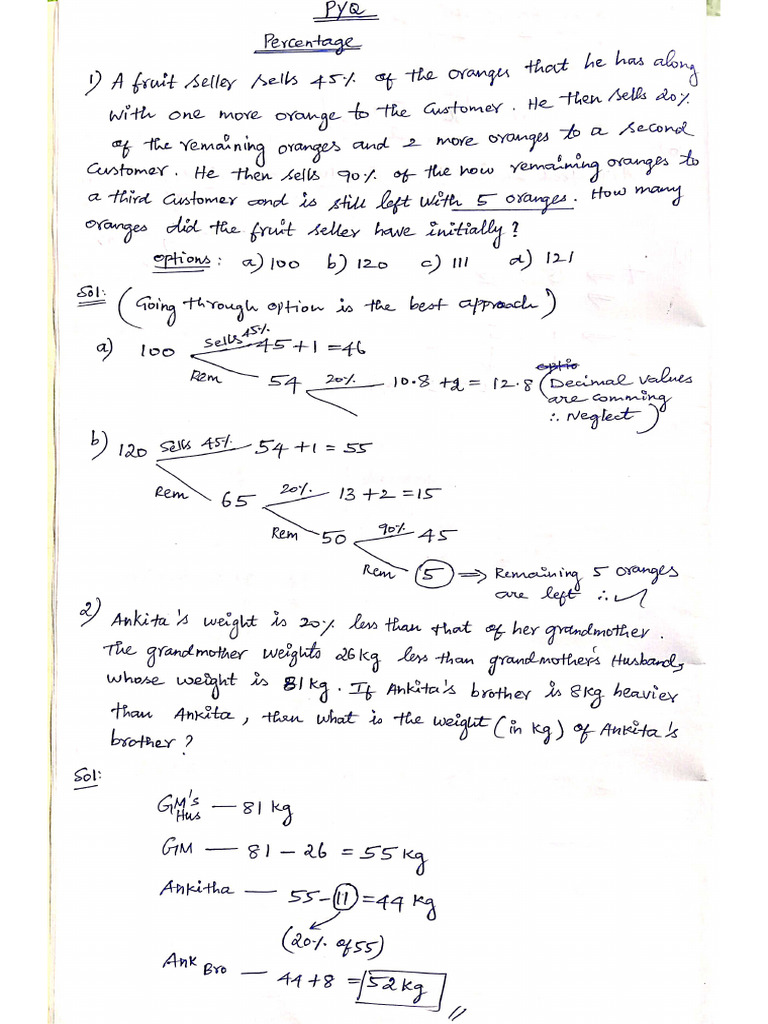 PYQ
Percentage
1) A fruit seller sells 45% of the oranges that he has along
with one more orange to the customer. He then sells 20%
of the remaining oranges and 2 more oranges to a second
customer. He then sells 90% of the now remaining oranges to
a third customer and is still left with 5 oranges. How many
oranges did the fruit seller have initially?
options: a) 100 b) 120 c) 111 d) 121
Sol: (Going through option is the best approach)
a) 100 sells 45% 45+1=46
Rem 54 20% 10.8 +2 = 12.8 (Decimal values
are comming
∴ Neglect)
b) 120 sells 45% 54+1=55
Rem 65 20% 13+2=15
Rem 50 90% 45
Rem 5 ⇒ Remaining 5 oranges
are left ∴ ✓
2) Ankita's weight is 20% less than that of her grandmother.
The grandmother weights 26kg less than grandmother's Husband,
whose weight is 81kg. If Ankita's brother is 8kg heavier
than Ankita, then what is the weight (in kg) of Ankita's
brother?
Sol:
GM's Hus — 81 kg
GM — 81 - 26 = 55 kg
Ankitha — 55-11=44 kg
(20% of 55)
Ank Bro — 44+8 = 52kg //